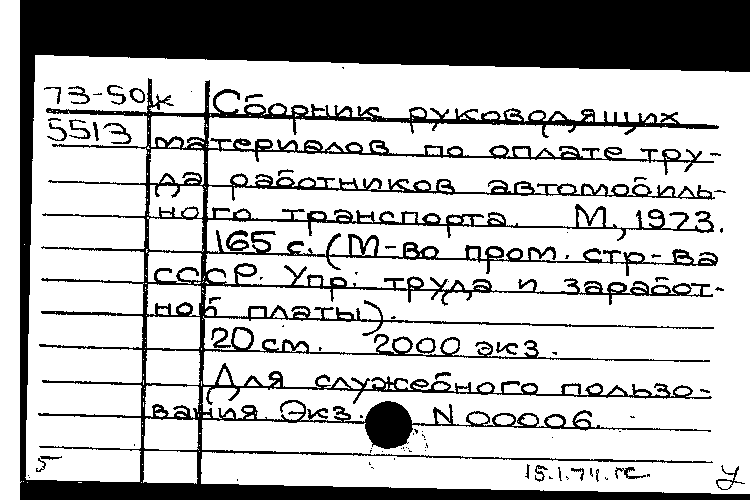 73-50к Сборник руководящих
5513 материалов по оплате тру-
да работников автомобиль-
ного транспорта. М., 1973.
165 с. (М-во пром. стр-ва
СССР. Упр. труда и заработ-
ной платы).
20 см. 2000 экз.
Для служебного пользо-
вания Экз. N 00006.
15.1.74.